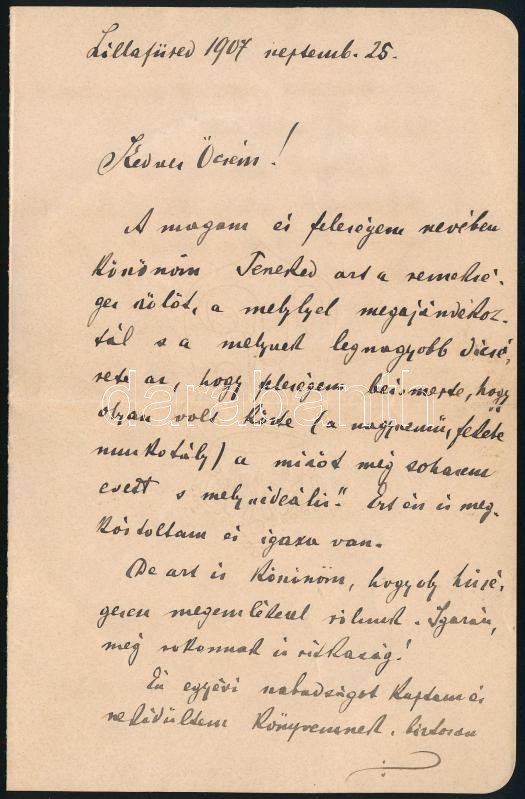 Lillafüred 1907 septemb. 25.
Kedves Öcsém!
A magam és feleségem nevében
köszönöm Teneked azt a remeksé-
ges szőlőt, a melylyel megajándékoz-
tál s a melynek legnagyobb dicsé-
rete az, hogy feleségem beismerte, hogy
olyan volt közte (a nagyszemű, fekete
muskotály) a minőt még sohasem
evett s mely „ideális”. Ezt én is meg-
kóstoltam és igaza van.
De azt is köszönöm, hogy oly hűsé-
gesen megemlékezel rólunk. Igazán,
még rokonnak is ritkaság!
Én egyévi szabadságot kaptam és
nekidültem könyvemnek, biztosan
darabanth